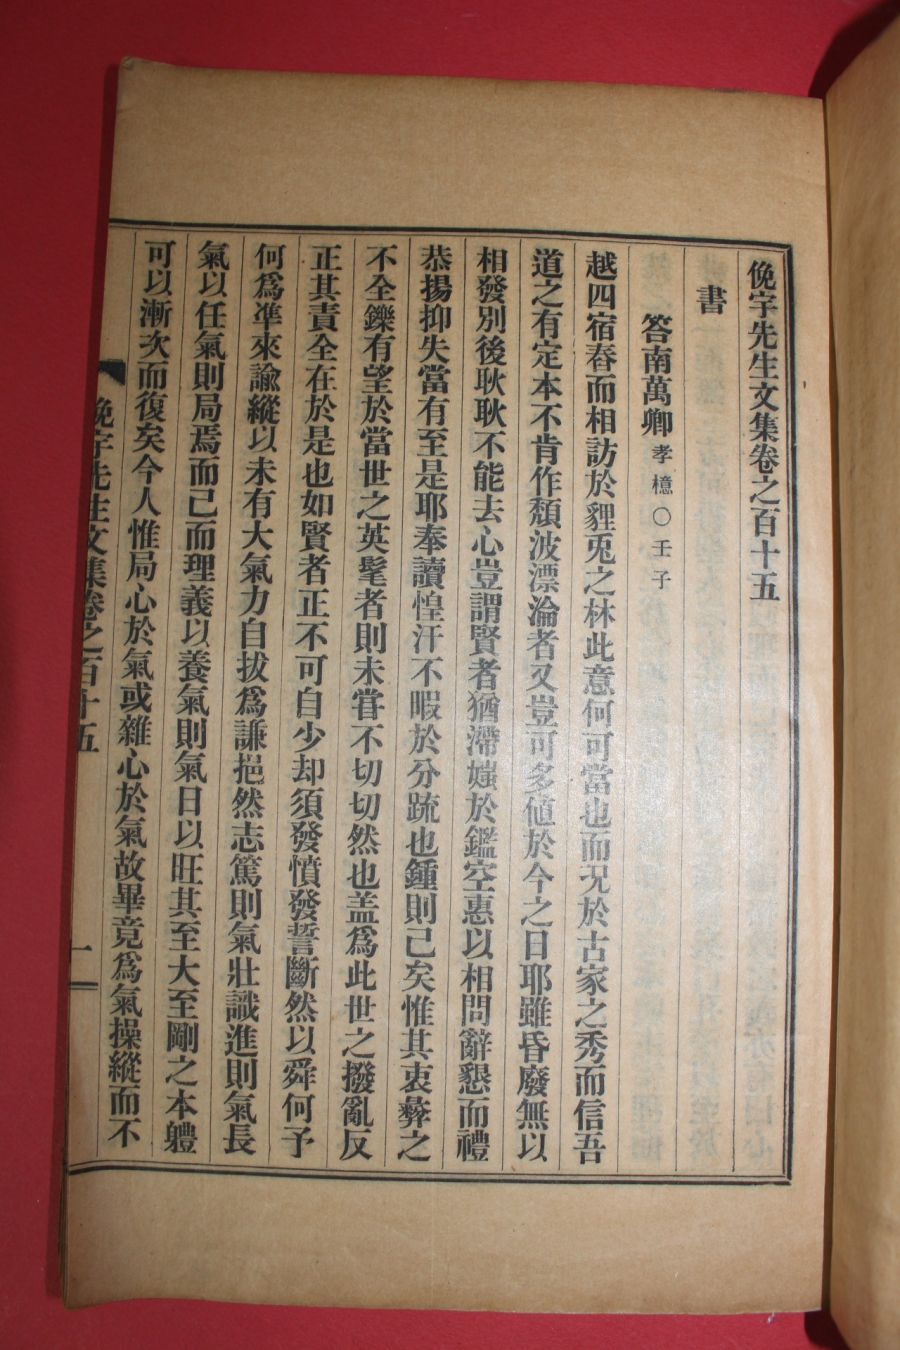 俛宇先生文集卷之百十五
書
答南萬卿孝檍○壬子
越四宿舂而相訪於貍兎之林此意何可當也而況於古家之秀而信吾
道之有定本不肯作頹波漂淪者又豈可多値於今之日耶雖昏廢無以
相發別後耿耿不能去心豈謂賢者猶滯媸於鑑空惠以相問辭懇而禮
恭揚抑失當有至是耶奉讀惶汗不暇於分疏也鍾則已矣惟其衷彝之
不全鑠有望於當世之英髦者則未甞不切切然也盖爲此世之撥亂反
正其責全在於是也如賢者正不可自少却須發憤發誓斷然以舜何予
何爲準來諭縱以未有大氣力自拔爲謙挹然志篤則氣壯識進則氣長
氣以任氣則局焉而已而理義以養氣則氣日以旺其至大至剛之本軆
可以漸次而復矣今人惟局心於氣或雜心於氣故畢竟爲氣操縱而不
俛宇先生文集卷之百十五
一